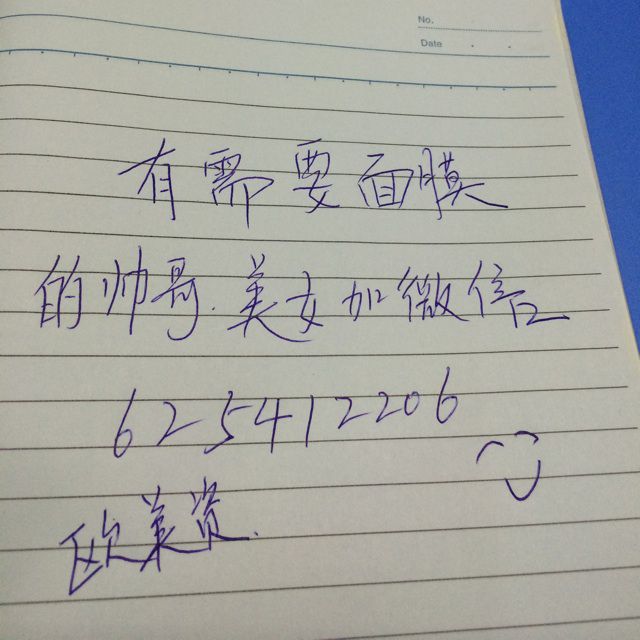 No.
Date
有需要面膜
的帅哥.美女加微信
625412206
欧莱资.